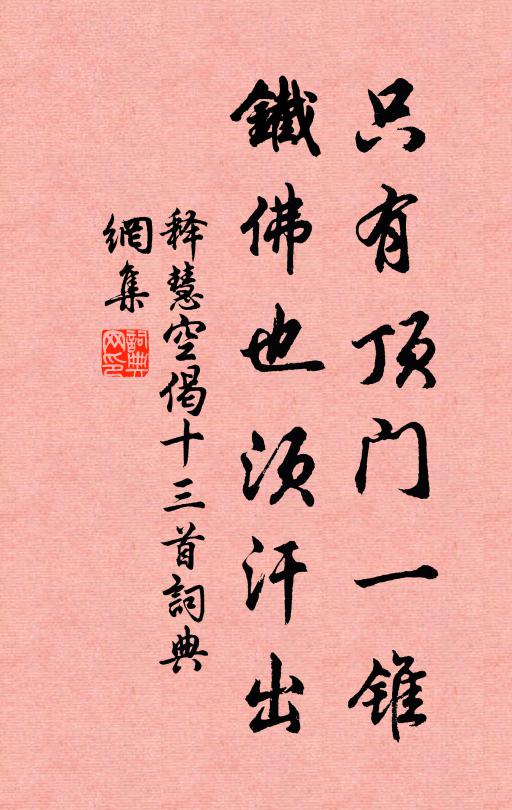 只有顶门一锥
鐵佛也须汗出
释慧空偈十三首詞典
網集
詞典
网印